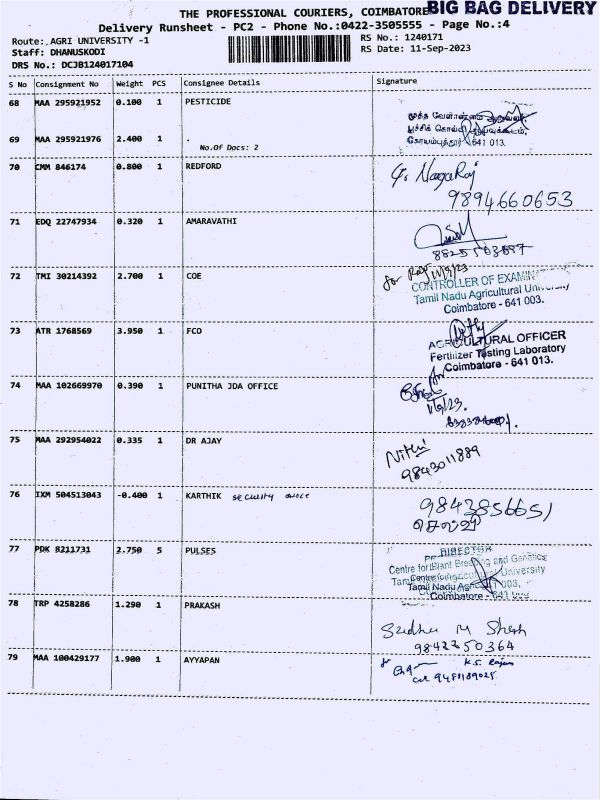 THE PROFESSIONAL COURIERS, COIMBATORE BIG BAG DELIVERY
Delivery Runsheet - PC2 - Phone No.:0422-3505555 - Page No.:4
Route: AGRI UNIVERSITY -1
RS No.: 1240171
Staff: DHANUSKODI
RS Date: 11-Sep-2023
DRS No.: DCJB124017104
S No Consignment No Weight PCS Consignee Details Signature
68 MAA 295921952 0.100 1 PESTICIDE
69 MAA 295921976 2.400 1 .
No.Of Docs: 2
641 013.
70 CMM 846174 0.800 1 REDFORD
NagaRaj
9894660653
71 EDQ 22747934 0.320 1 AMARAVATHI
72 TMI 30214392 2.700 1 COE
11/9/23
CONTROLLER OF
Tamil Nadu Agricultural
Coimbatore - 641 003.
73 ATR 1768569 3.950 1 FCO
AGRICULTURAL OFFICER
Fertilizer Testing Laboratory
Coimbatore - 641 013.
74 MAA 102669970 0.390 1 PUNITHA JDA OFFICE
75 MAA 292954022 0.335 1 DR AJAY
Nithi
9843011889
76 IXM 504513043 -0.400 1 KARTHIK security
9843856651
77 PDK 8211731 2.750 5 PULSES
DIRECTOR
Centre for Plant Breeding and Genetics
University
Coimbatore -
78 TRP 4258286 1.290 1 PRAKASH
79 MAA 100429177 1.900 1 AYYAPAN